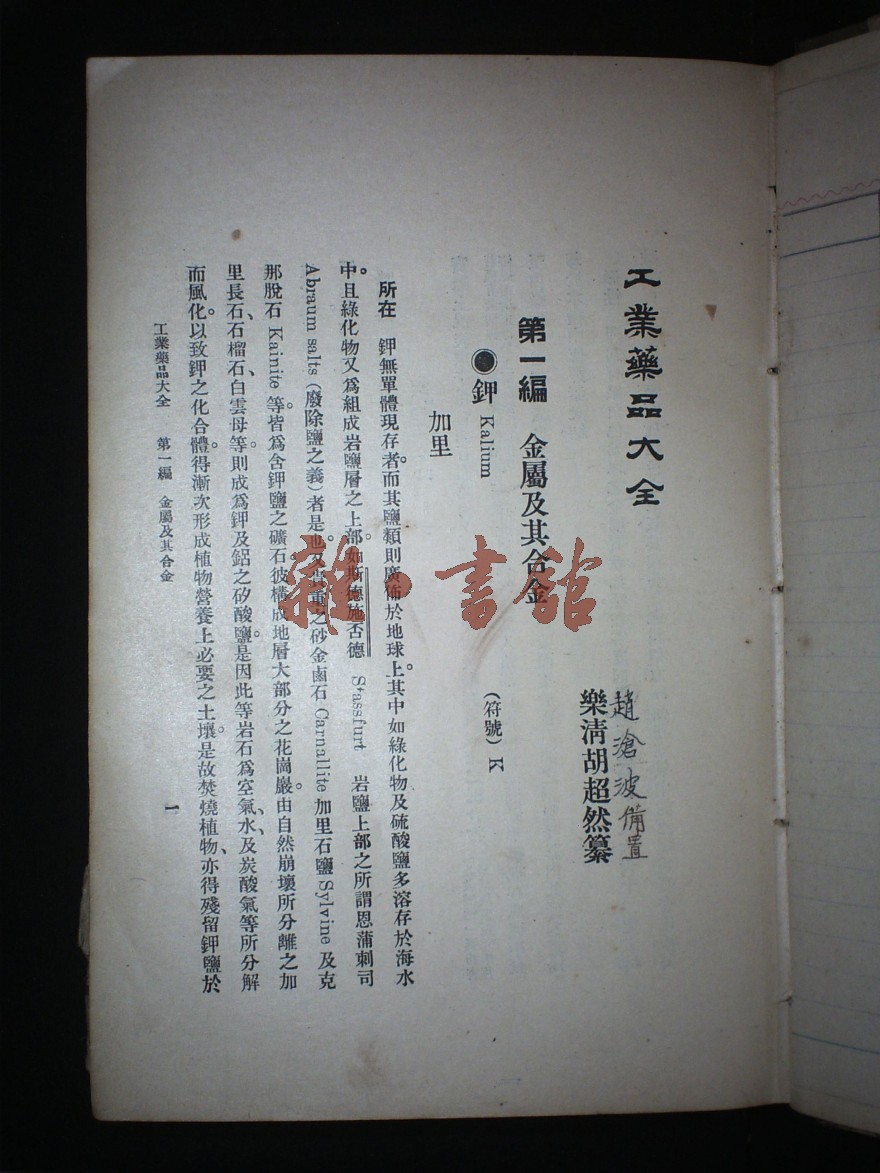 工業藥品大全
趙滄波備置
樂淸胡超然纂
第一編　金屬及其合金
●鉀 Kalium　（符號）K
加里
所在　鉀無單體現存者。而其鹽類則廣佈於地球上。其中如綠化物及硫酸鹽多溶存於海水
中。且綠化物又爲組成岩鹽層之上部。如斯德施否德 Stassfurt 岩鹽上部之所謂恩蒲刺司
Abraum salts（廢除鹽之義）者是也。又貴重之砂金鹵石 Carnallite 加里石鹽 Sylvine 及克
那脫石 Kainite 等。皆爲含鉀鹽之礦石。彼構成地層大部分之花崗巖。由自然崩壞所分離之加
里長石、石榴石、白雲母等。則成爲鉀及鋁之矽酸鹽。是因此等岩石爲空氣、水、及炭酸氣等所分解
而風化。以致鉀之化合體。得漸次形成植物營養上必要之土壤。是故焚燒植物、亦得殘留鉀鹽於
工業藥品大全　第一編　金屬及其合金　一
雜·書館